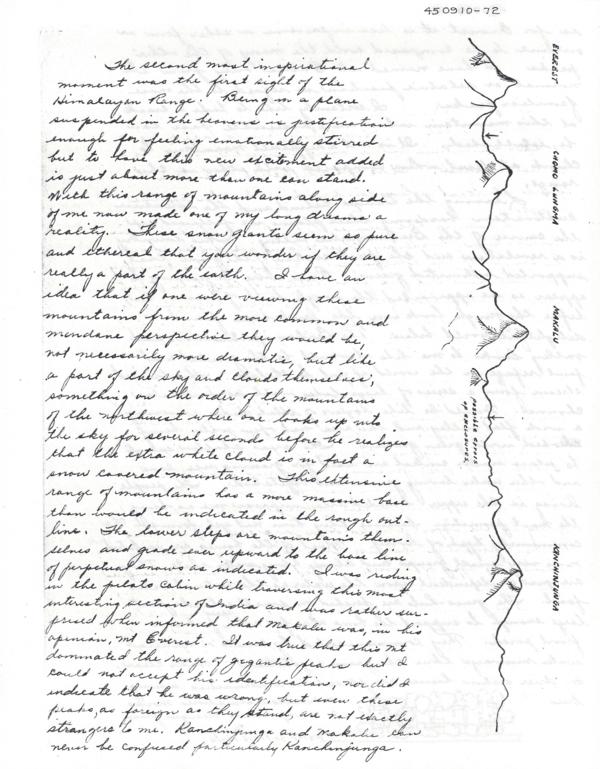 450910-72
The second most inspirational
moment was the first sight of the
Himalayan Range. Being in a plane
suspended in the heavens is justification
enough for feeling emotionally stirred
but to have this new excitement added
is just about more than one can stand.
With this range of mountains along side
of me now made one of my long dreams a
reality. These snow giants seem so pure
and ethereal that you wonder if they are
really a part of the earth. I have an
idea that if one were viewing these
mountains from the more common and
mundane perspective they would be,
not necessarily more dramatic, but like
a part of the sky and clouds themselves;
something on the order of the mountains
of the northwest where one looks up into
the sky for several seconds before he realizes
that the extra white cloud is in fact a
snow covered mountain. This extensive
range of mountains has a more massive base
than would be indicated in the rough out-
line. The lower steps are mountains them-
selves and grade ever upward to the base line
of perpetual snows as indicated. I was riding
in the pilots cabin while traversing this most
interesting section of India and was rather sur-
prised when informed that Makalu was, in his
opinion, Mt Everest. It was true that this Mt
dominated the range of gigantic peaks but I
could not accept his identification, nor did I
indicate that he was wrong, but even these
peaks, as foreign as they stand, are not exactly
strangers to me. Kanchinjunga and Makalu can
never be confused particularly Kanchinjunga.
EVEREST
CHOMO LUNGMA
MAKALU
KANCHINJUNGA